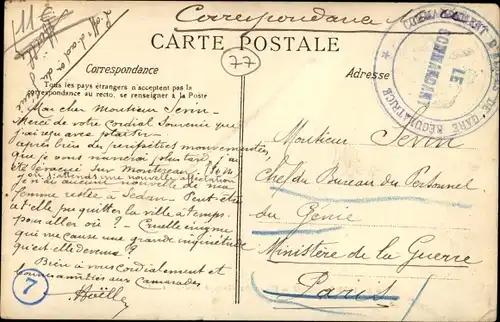 Correspondance
CARTE POSTALE
77
Correspondance
Adresse
Tous les pays étrangers n'acceptent pas la
correspondance au recto, se renseigner à la Poste
COMMANDANT GARE RÉGULATRICE
LE
COMMANDANT
Mon cher Monsieur Sevin
Merci de votre Cordial Souvenir que
j'ai reçu avec plaisir
après bien des péripéties mouvementées,
que je vous narrerai plus tard, j'ai
été évacué sur Montereau
où j'attends une nouvelle affectation
je n'ai aucune nouvelle de ma
femme restée à Sedan. Peut être
a-t-elle pu quitter la ville à temps.
pour aller où ? Cruelle énigme
qui me cause une grande inquiétude
qu'est elle devenue ?
Bien à vous cordialement et
aux Camarades
7
Monsieur Sevin
Chef du Bureau du Personnel
du Génie
Ministère de la Guerre
Paris